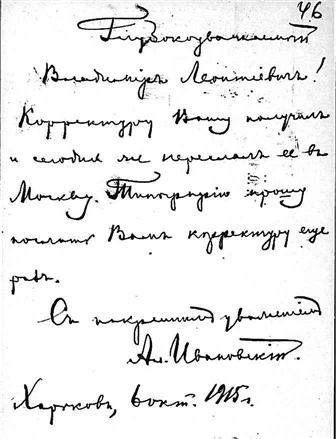 46
Глубокоуважаемый
Владимиръ Леонтіевичъ!
Корректуру Вашу получилъ
и сегодня же переслалъ ее въ
Москву. Типографію прошу
послать Вамъ корректуру еще
разъ.
Съ искреннимъ уваженіемъ
Ал. Ивановскій.
Харьковъ, 6 окт. 1915 г.